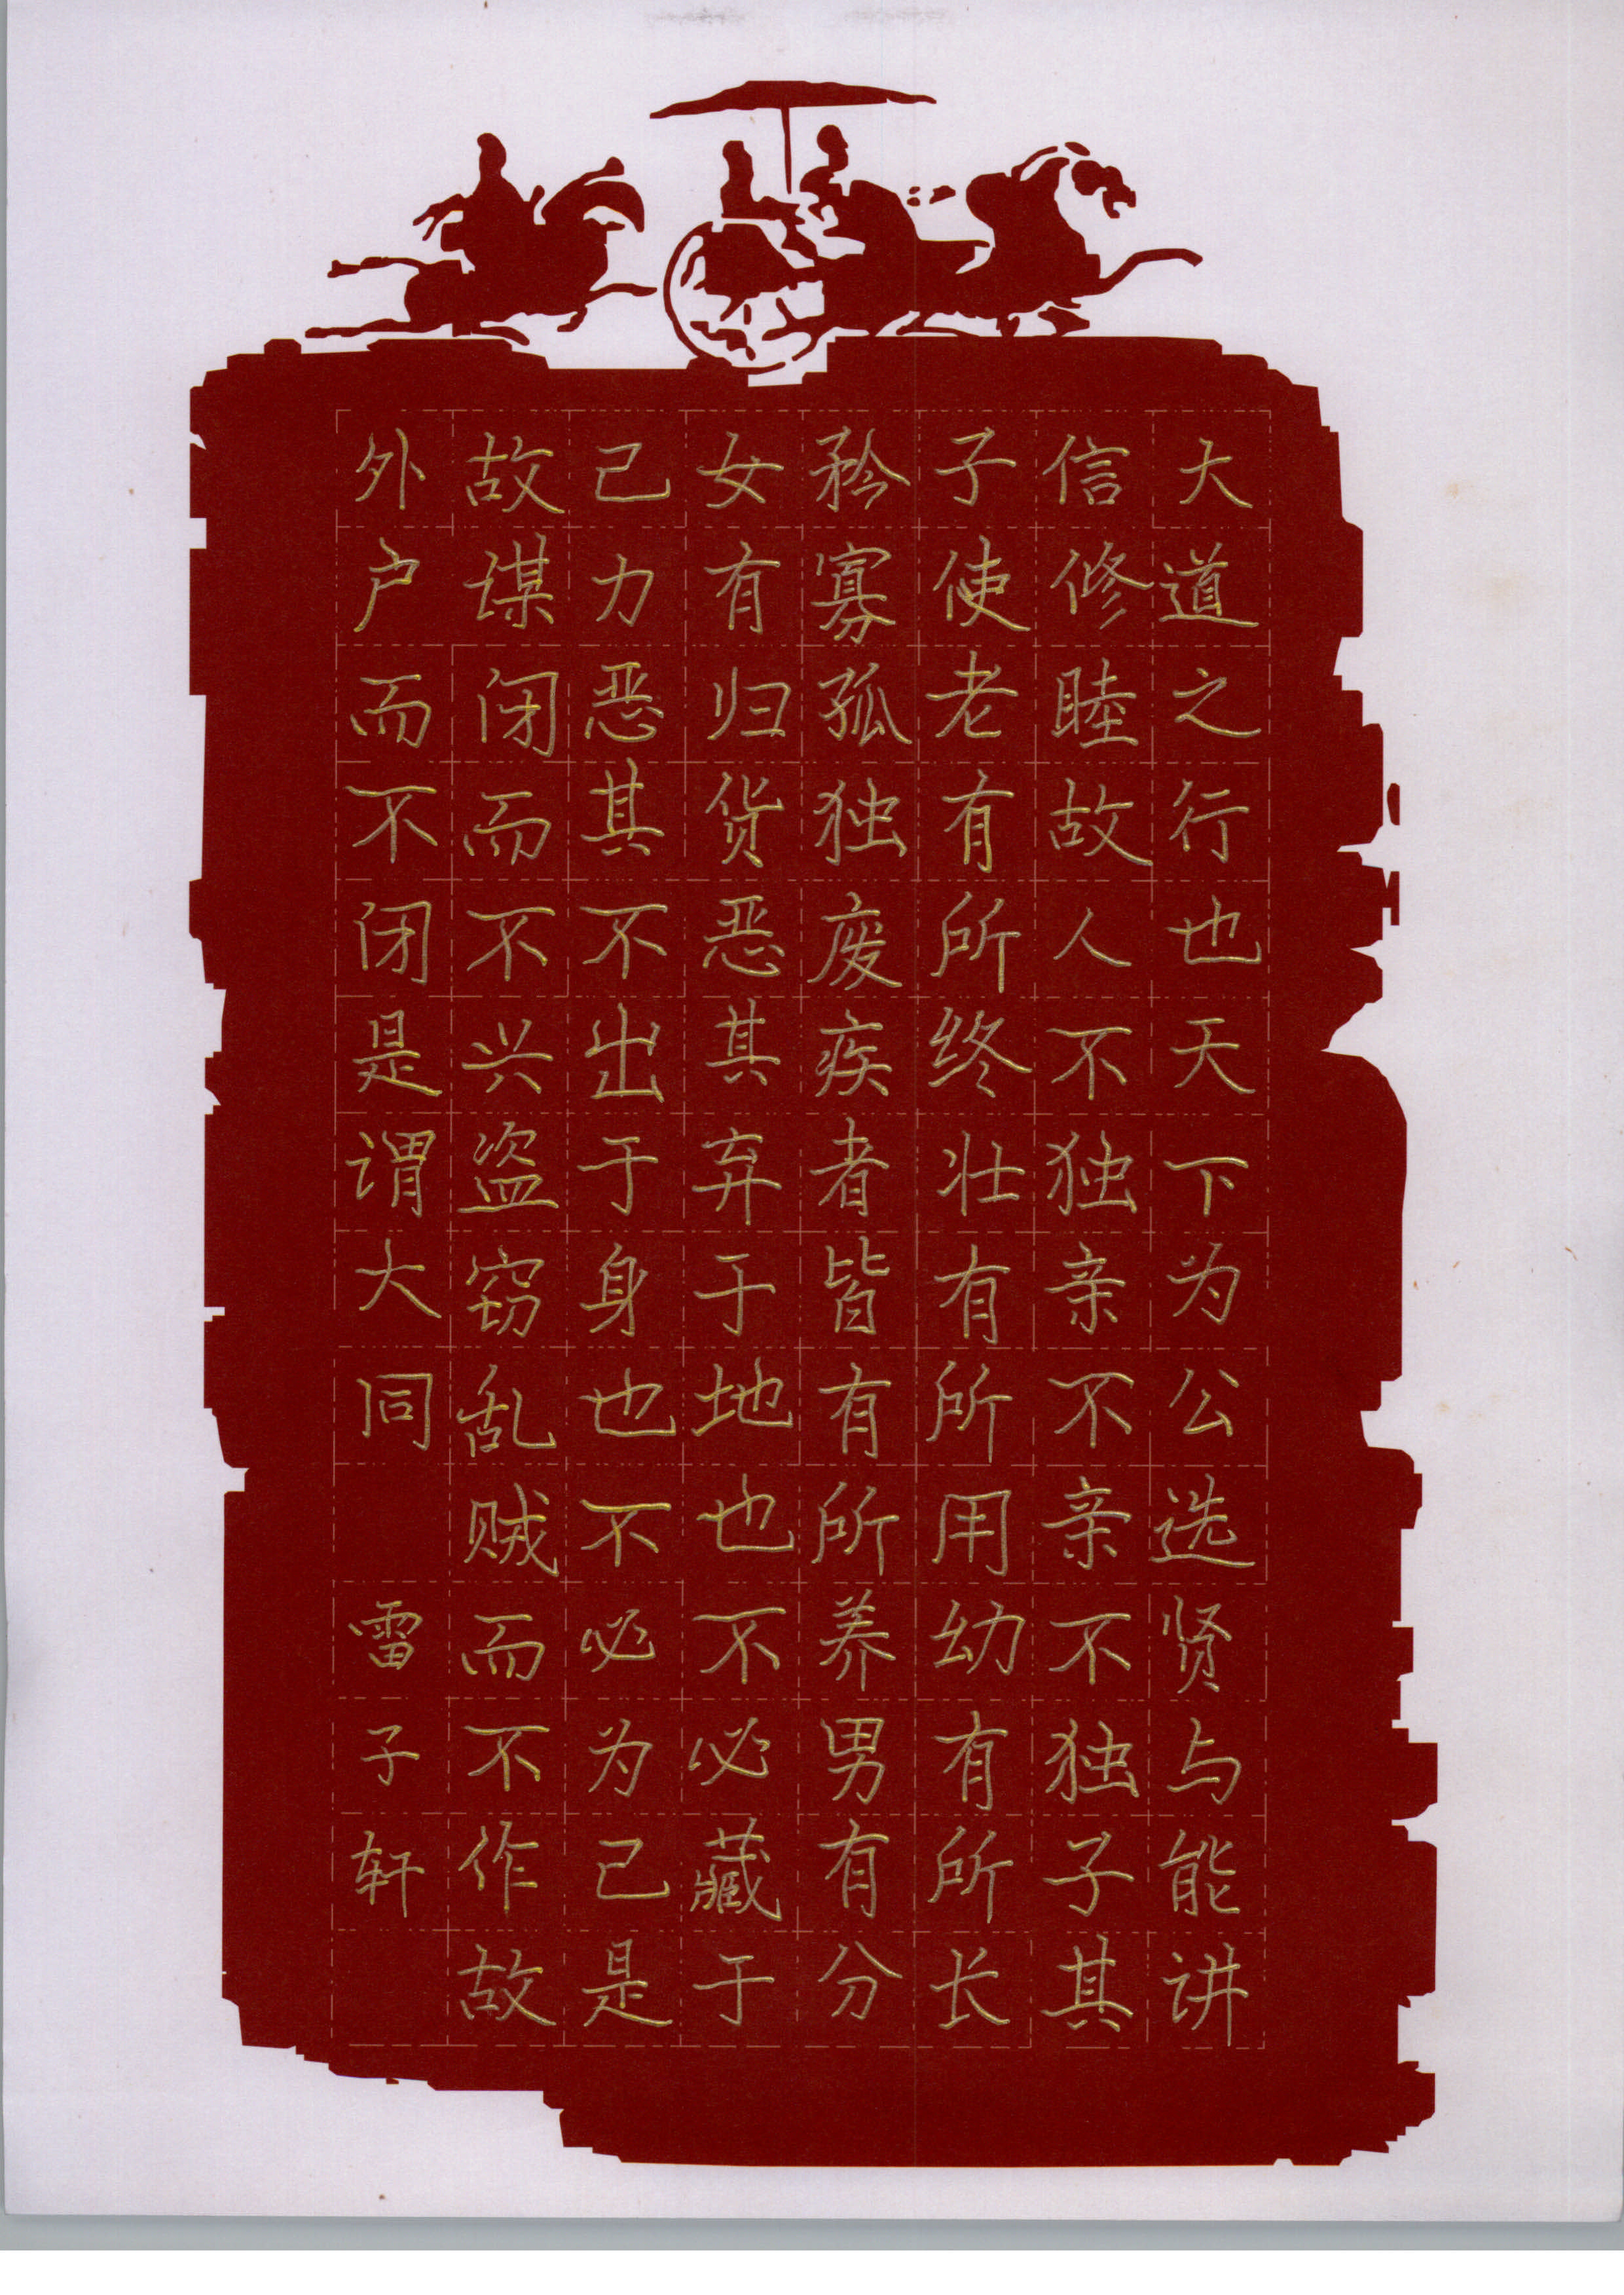 大道之行也天下为公选贤与能讲
信修睦故人不独亲不亲不独子其
子使老有所终壮有所用幼有所长
矜寡孤独废疾者皆有所养男有分
女有归货恶其弃于地也不必藏于
己力恶其不出于身也不必为己是
故谋闭而不兴盗窃乱贼而不作故
外户而不闭是谓大同 雷子轩